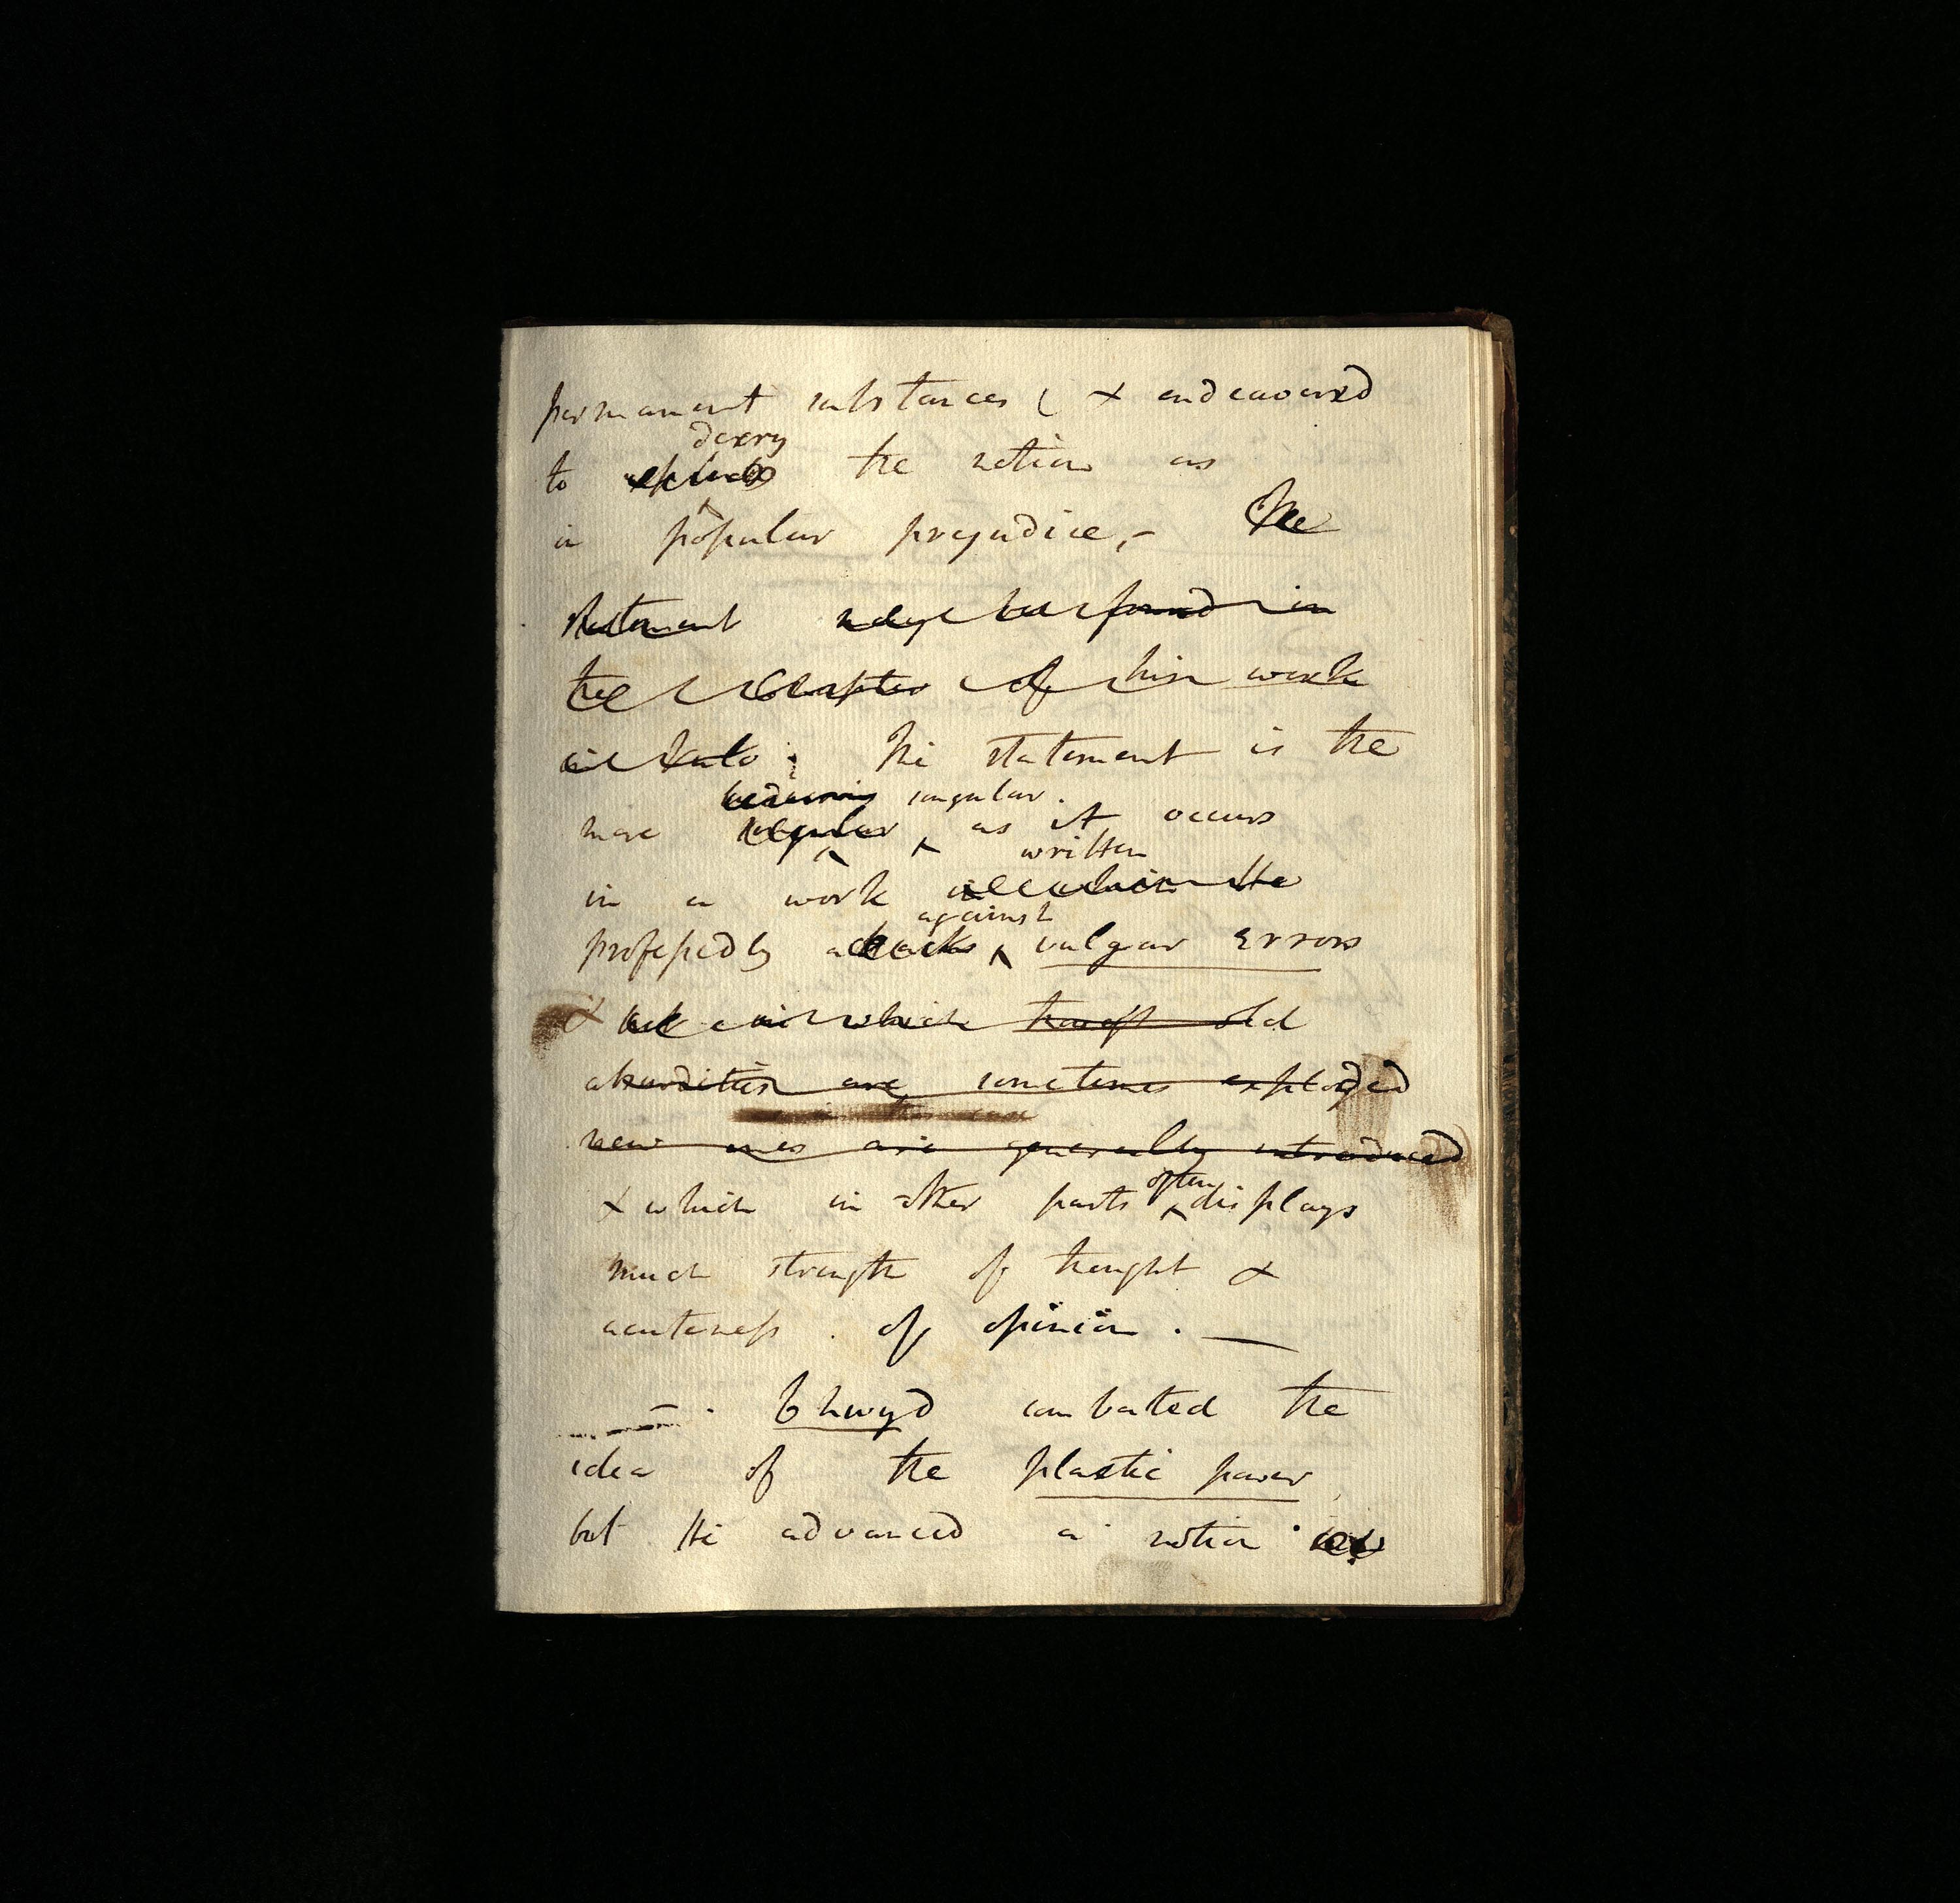 permanent substances ( & endeavoured
decry
to explode the notion as
a popular prejudice, - The
statement may be found in
the Chapter of his work
The statement is the
singular.
more singular as it occurs
written
in a work in which He
against
professedly attack vulgar errors
& in which though old
absurdities are sometimes exploded
new ones are generally introduced
often
& which in other parts displays
much strength of thought &
acuteness . of opinion . —
Lhwyd combated the
idea of the plastic power
but He advanced a notion